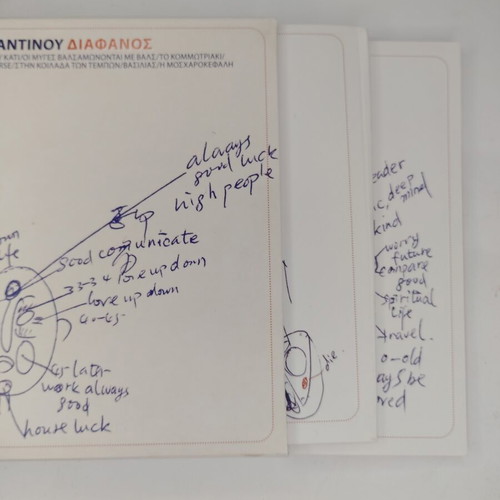 ΑΝΤΙΝΟΥ ΔΙΑΦΑΝΟΣ
ΚΑΤΙ/ΟΙ ΜΥΓΕΣ ΒΑΛΣΑΜΩΝΟΝΤΑΙ ΜΕ ΒΑΛΣ/ΤΟ ΚΟΜΜΩΤΡΙΑΚΙ/
RSE/ΣΤΗΝ ΚΟΙΛΑΔΑ ΤΩΝ ΤΕΜΠΩΝ/ΒΑΣΙΛΙΑΣ/Η ΜΟΣΧΑΡΟΚΕΦΑΛΗ
always
good luck
high people
up
good comunicate
33-34 love up down
love up down
40-45
45 later
work always
good
house luck
die
eader
deep
mind
kind
worry
future
compare
good
spiritual
life
travel
o-old
ays be